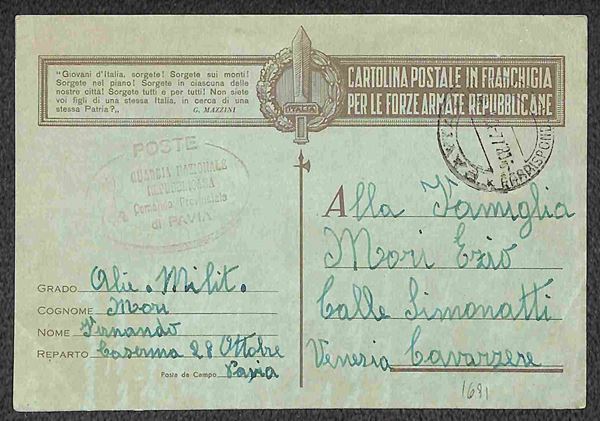 "Giovani d'Italia, sorgete! Sorgete sui monti!
Sorgete nel piano! Sorgete in ciascuna delle
nostre città! Sorgete tutti e per tutti! Non siete
voi figli di una stessa Italia, in cerca di una
stessa Patria?„
G. MAZZINI
ITALIA
CARTOLINA POSTALE IN FRANCHIGIA
PER LE FORZE ARMATE REPUBBLICANE
POSTE
GUARDIA NAZIONALE
REPUBBLICANA
Comando Provinciale
di PAVIA
Alla Famiglia
Mori Ezio
Calle Simonatti
Venezia Cavarzere
GRADO Alie. Milit.
COGNOME Mori
NOME Fernando
REPARTO Caserma 28 Ottobre
Posta da Campo Pavia
1691